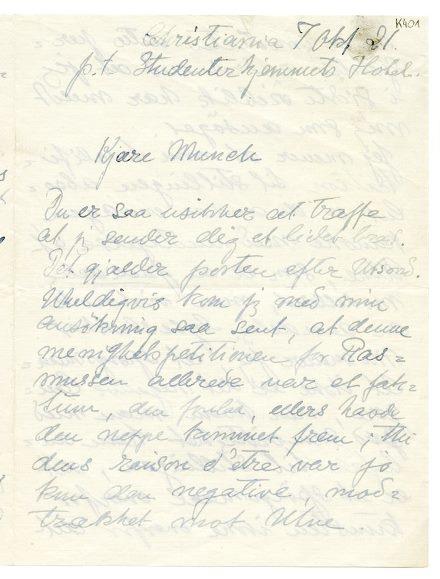 K401
Christiania 7 okt 21.
p.t. Studenterhjemmets Hotel.
Kjære Munch
Du er saa usikker at træffe
at jeg sender dig et lidet
Det gjælder posten efter Utsond.
Uheldigvis kom jeg med min
ansökning saa sent, at denne
menighetspetitionen for Ras=
mussen allerede var et fak=
tum, den ellers havde
den neppe kommet frem; thi
dens raison d'être var jo
kun den negative, mod=
trækket mot Utne